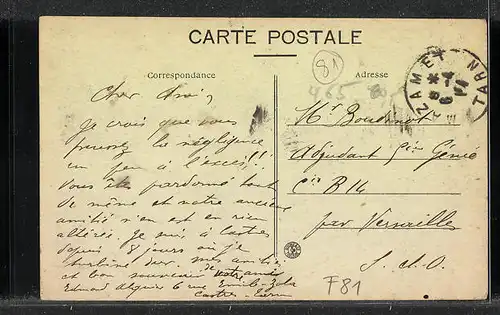 CARTE POSTALE
Correspondance
Adresse
81
465
MAZAMET
TARN
Cher Ami,
Je crois que vous
poussez la négligence
un peu à l'excès!!
Vous êtes pardonné tout
de même et notre ancienne
amitié n'en est en rien
altérée. Je suis à Castres
depuis 8 jours où je
mes amitiés
et bon souvenir de votre ami
Edmond 6 rue Emile Zola
Castres - Tarn
Mr Boudinot
Adjudant Génie
Cie B 14
par Versailles
S. & O.
F81